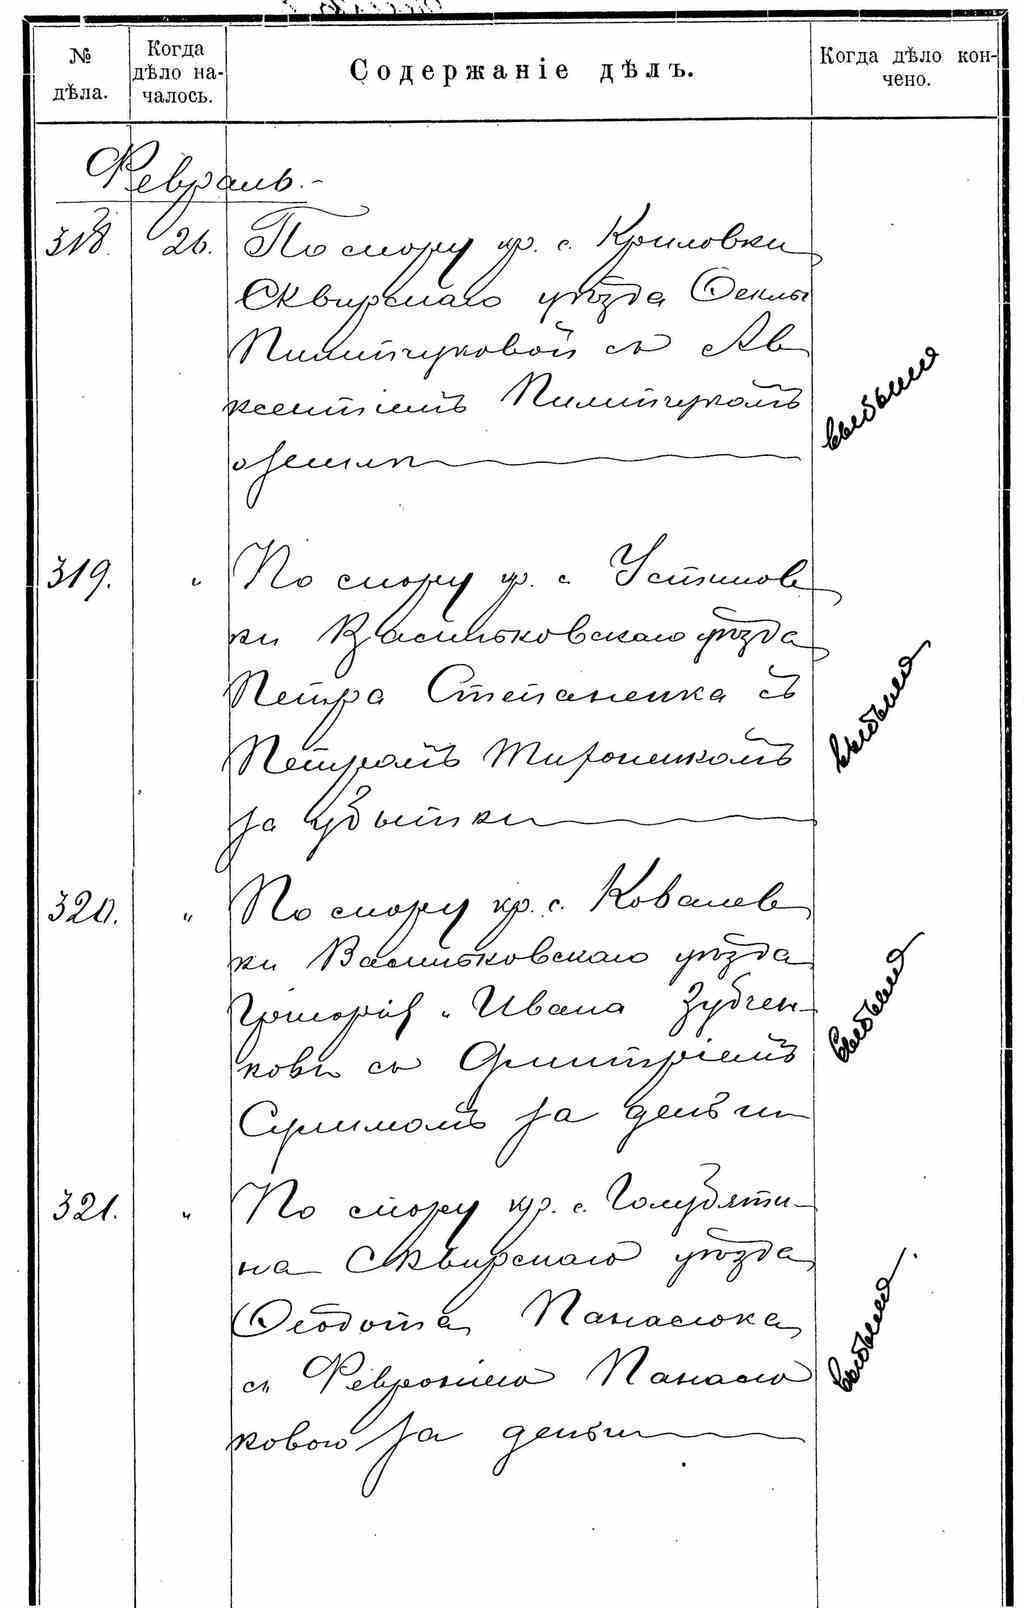 № дѣла.
Когда дѣло на-
чалось.
Содержаніе дѣлъ.
Когда дѣло кон-
чено.
Февраль.
318. 26. По спору кр. с. Криловки
Сквирскаго уѣзда Ѳеклы
Пилипчуковой съ Ав
ксентіемъ Пилипчукомъ
о землѣ
выбыло
319. " По спору кр. с. Устимов
ки Васильковскаго уѣзда
Петра Степаненка съ
Петромъ Мироненкомъ
за убытки
выбыло
320. " По спору кр. с. Ковалев
ки Васильковскаго уѣзда
Григорія и Ивана Зубчен-
ковъ съ Дмитріемъ
за деньги
выбыло
321. " По спору кр. с. Голубяти-
на Сквирскаго уѣзда
Ѳеодота Панасюка
съ Февроніею Панасю
ковою за деньги
выбыло